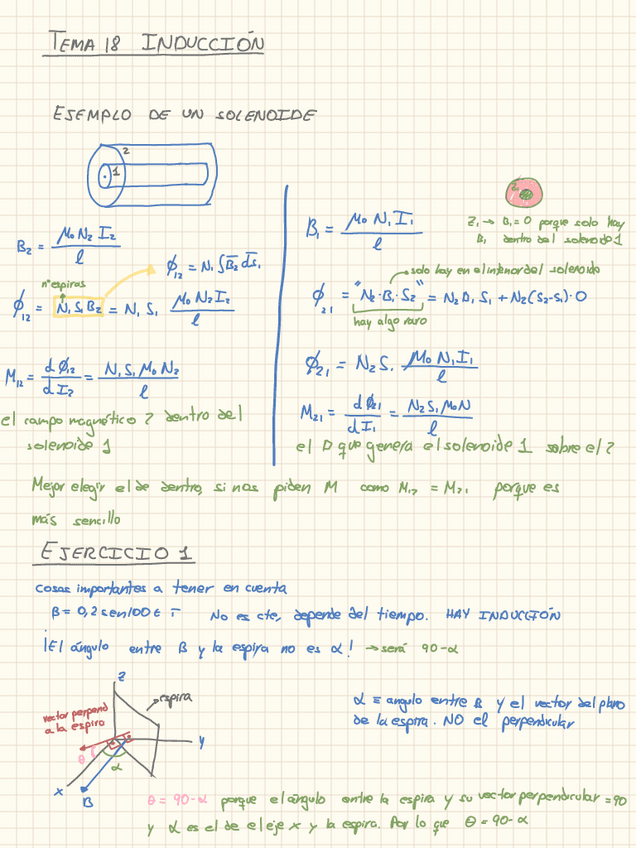 TEMA 18 INDUCCIÓN
EJEMPLO DE UN SOLENOIDE
2
1
B₂ = μ₀ N₂ I₂ / l
ϕ₁₂ = N₁ ∫B₂ ds₁
nºespiras
ϕ₁₂ = N₁ S₁ B₂ = N₁ S₁ μ₀ N₂ I₂ / l
M₁₂ = dϕ₁₂ / dI₂ = N₁ S₁ μ₀ N₂ / l
el campo magnético 2 dentro del
solenoide 1
B₁ = μ₀ N₁ I₁ / l
B₁ = 0 porque solo hay
B₁ dentro del solenoide 1
solo hay en el interior del solenoide
ϕ₂₁ = "N₂·B₁·S₂" = N₂ B₁ S₁ + N₂(S₂-S₁)·0
hay algo raro
ϕ₂₁ = N₂ S₁ μ₀ N₁ I₁ / l
M₂₁ = dϕ₂₁ / dI₁ = N₂ S₁ μ₀ N / l
el B que genera el solenoide 1 sobre el 2
Mejor elegir el de dentro, si nos piden M como M₁₂ = M₂₁ porque es
más sencillo
EJERCICIO 1
Cosas importantes a tener en cuenta
B = 0,2 sen100t T No es cte, depende del tiempo. HAY INDUCCIÓN
¡El ángulo entre B y la espira no es α! → será 90-α
z
espira
vector perpend
a la espira
y
θ
α
x
B
α ≡ angulo entre B y el vector del plano
de la espira. NO el perpendicular
θ = 90-α porque el ángulo entre la espira y su vector perpendicular = 90
y α es el de el eje x y la espira. Por lo que θ = 90-α